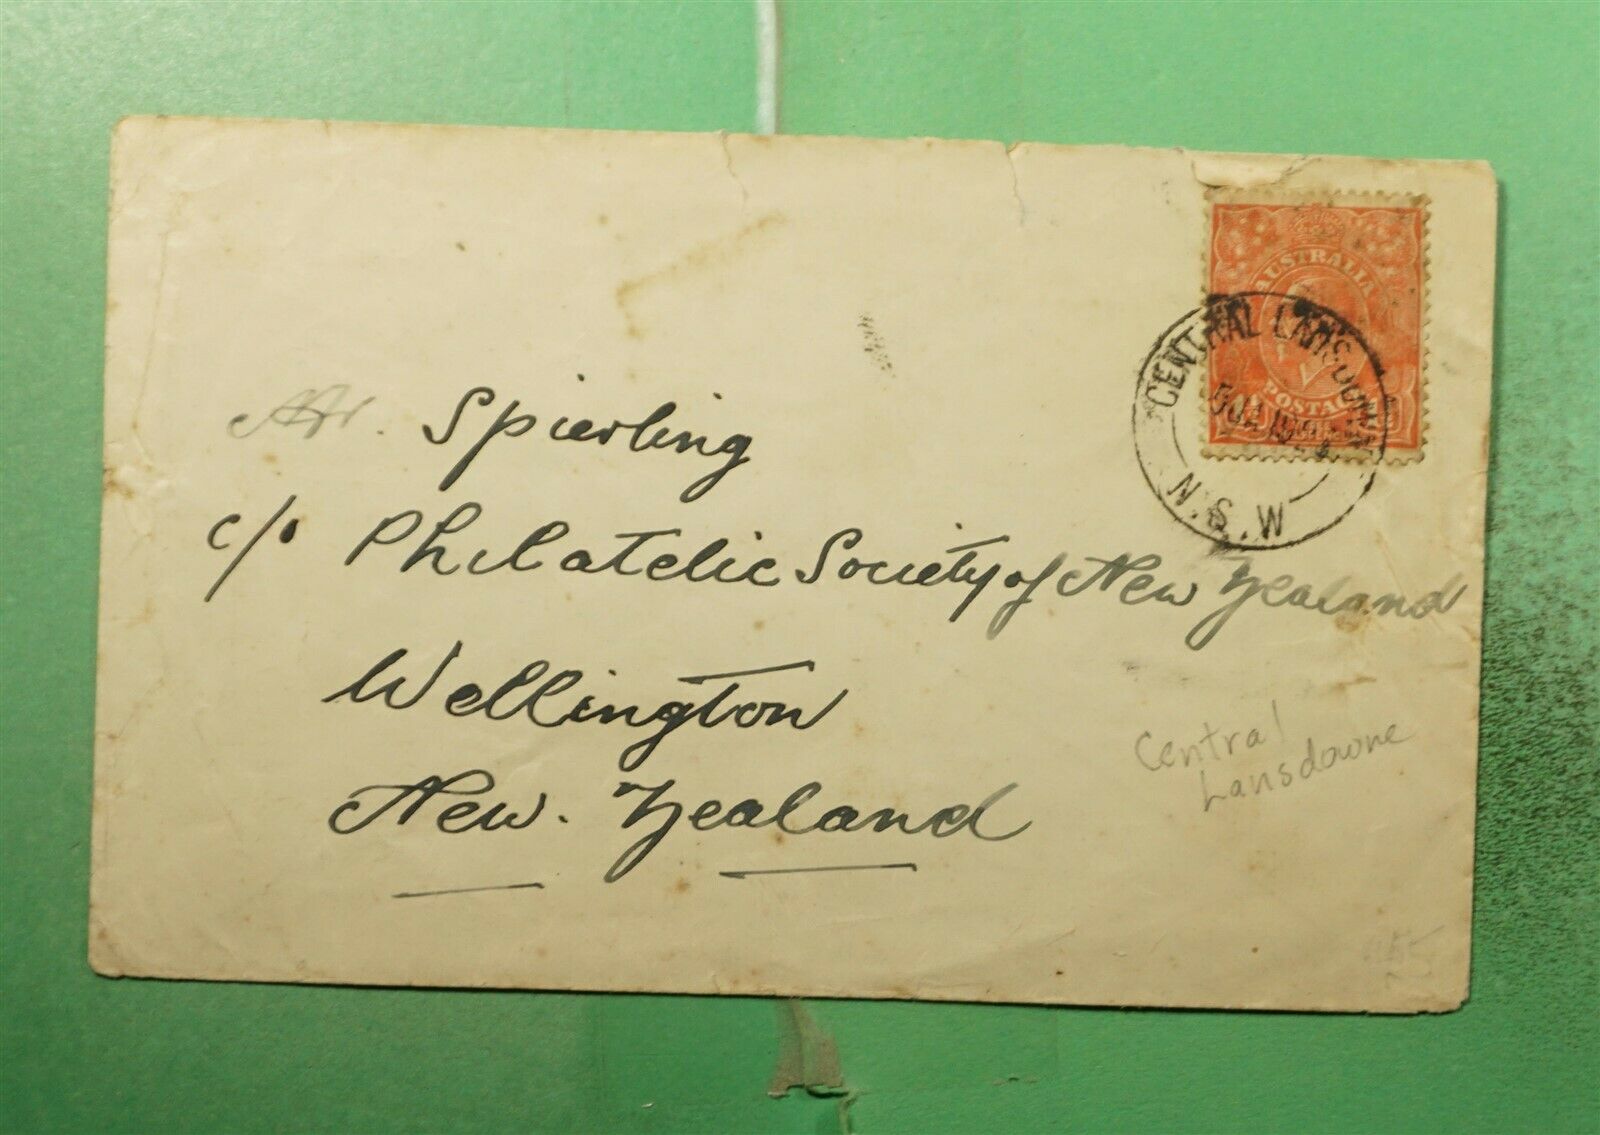 AUSTRALIA
POSTAGE
CENTRAL LANSDOWNE
N.S.W
Mr. Spierling
c/o Philatelic Society of New Zealand
Wellington
New. Zealand
Central
Lansdowne